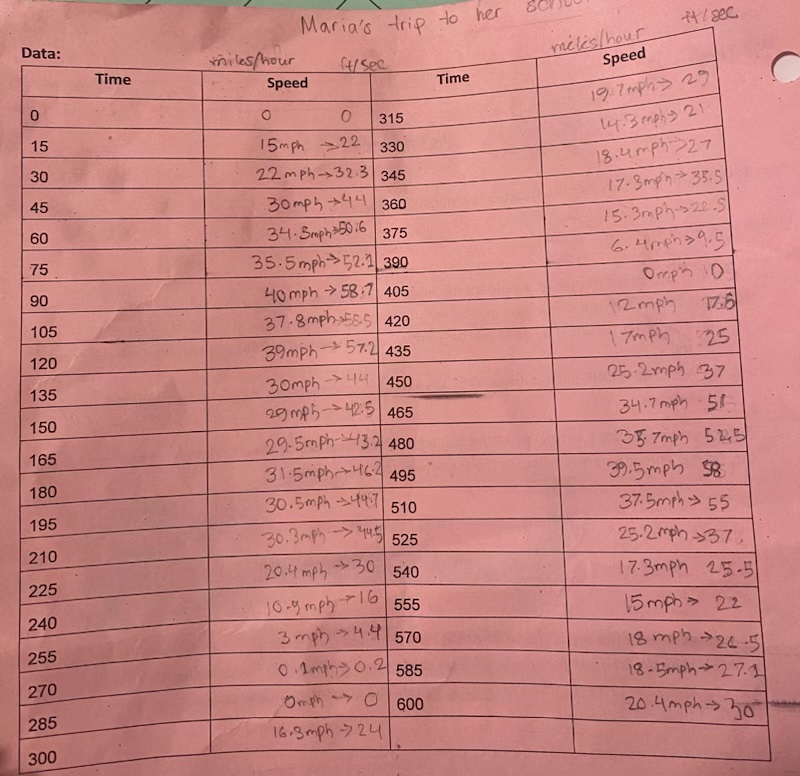 Maria's trip to her school
miles/hour ft/sec miles/hour ft/sec
Data:
Time Speed Time Speed
0 0 0 315 19.7mph→ 29
15 15mph →22 330 14.3mph→ 21
30 22mph→32.3 345 18.4mph→27
45 30mph→44 360 17.3mph→35.5
60 34.5mph→50.6 375 15.3mph→22.5
75 35.5mph→52.1 390 6.4mph→9.5
90 40mph→58.7 405 0mph 0
105 37.8mph→55.5 420 12mph 17.6
120 39mph→57.2 435 17mph 25
135 30mph→44 450 25.2mph 37
150 29mph→42.5 465 34.7mph 51
165 29.5mph→43.2 480 35.7mph 52.5
180 31.5mph→46.2 495 39.5mph 58
195 30.5mph→44.7 510 37.5mph→ 55
210 30.3mph→44.5 525 25.2mph→37
225 20.4mph→30 540 17.3mph 25.5
240 10.9mph→16 555 15mph→ 22
255 3mph→4.4 570 18mph→26.5
270 0.1mph→0.2 585 18.5mph→27.1
285 0mph→ 0 600 20.4mph→30
300 16.3mph→24